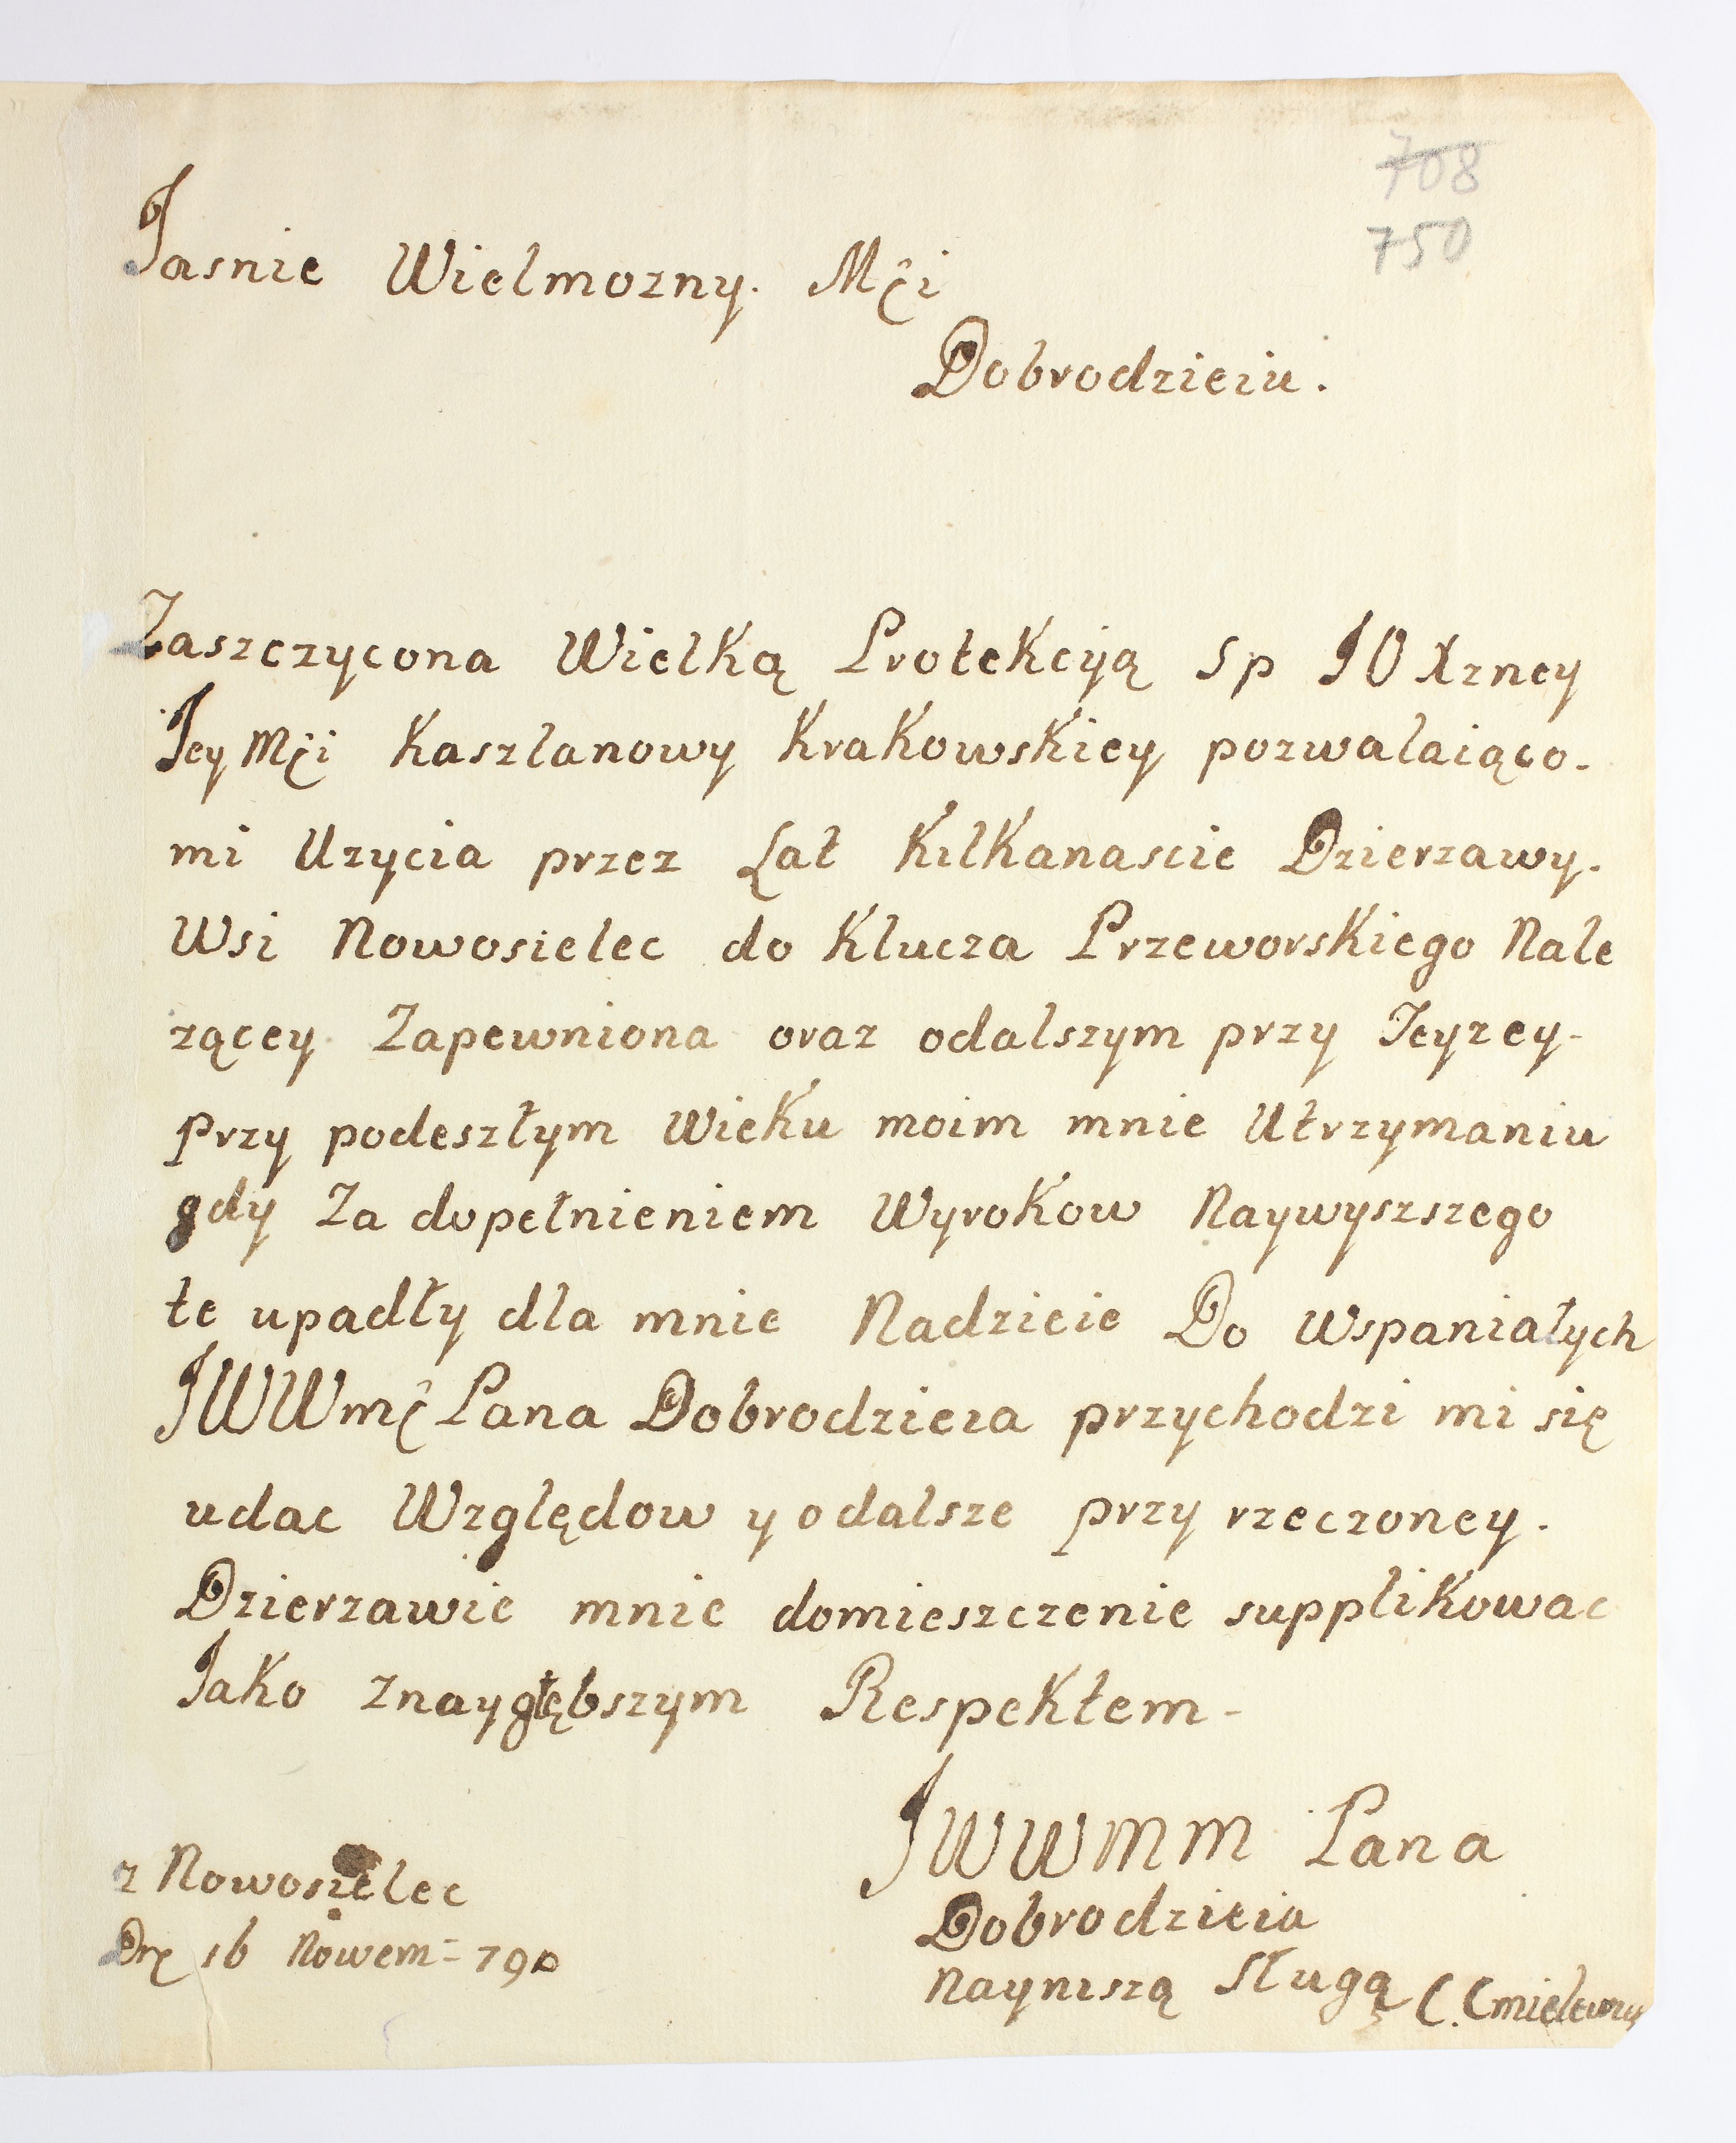 708
750
Jasnie Wielmozny. Mći
Dobrodzieiu.
Zaszczycona Wielką Protekcyą Sp JO Xzney
Jey Mći Kasztanowy Krakowskiey pozwalaiąco-
mi Uzycia przez Lat Kilkanascie Dzierzawy.
Wsi Nowosielec do Klucza Przeworskiego Nale
zącey Zapewniona oraz odalszym przy Teyzey-
Przy podeszłym Wieku moim mnie Utrzymaniu
gdy Za dopełnieniem Wyrokow Naywyszszego
te upadły dla mnie Nadzieie Do Wspaniałych
JWWmć Pana Dobrodzieia przychodzi mi się
udac Względow y odalsze przy rzeczoney.
Dzierzawie mnie domieszczenie supplikowac
Jako Znaygłębszym Respektem-
JWWMM Pana
Dobrodzieia
Nayniszą Sługą C.
z Nowosielec
16 Nowem= 790